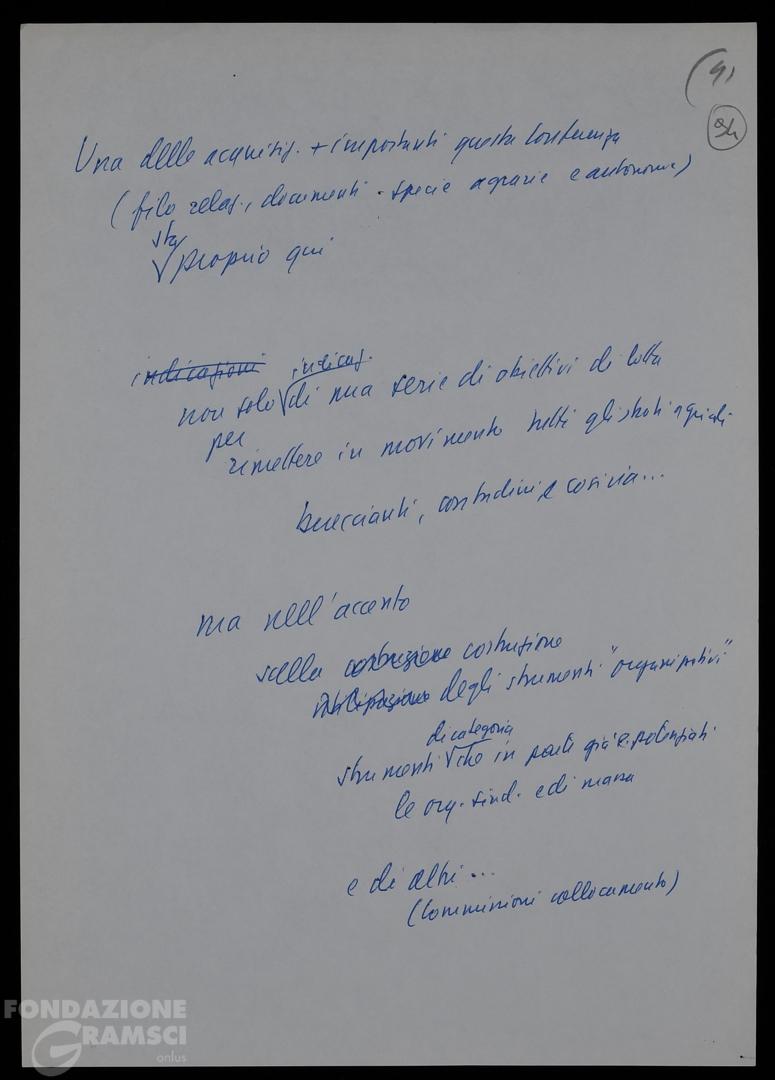 (41
24
Una delle acquisiz. + importanti questa Conferenza
(filo relaz., documenti - specie agrarie e autonomie)
sta
proprio qui
indicazioni indicaz.
non solo di una serie di obiettivi di lotta
per
rimettere in movimento tutti gli strati agricoli
braccianti, contadini e così via...
ma nell'accento
sulla costruzione costruzione
degli strumenti "organizzativi"
di categoria
strumenti che in parte già potenziati
le org. sind. e di massa
e di altri...
(Commissioni collocamento)
FONDAZIONE
GRAMSCI
onlus